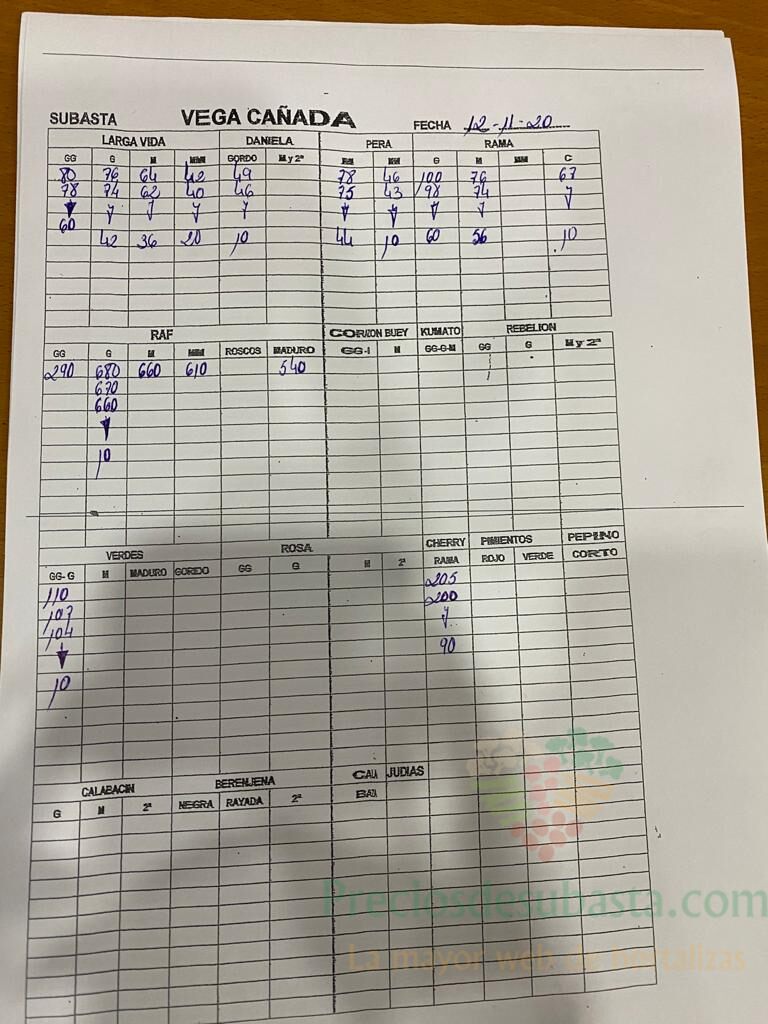 SUBASTA VEGA CAÑADA FECHA 12-11-20
LARGA VIDA DANIELA PERA RAMA
GG G M MM GORDO M y 2ª MM G M MM C
80 76 64 42 49 78 46 100 76 67
78 74 62 40 46 75 43 98 74
60
42 36 20 10 44 10 60 56 10
RAF CORAZON BUEY KUMATO REBELION
GG G M MM ROSCOS MADURO GG-1 M GG-G-M GG G M y 2ª
290 680 660 610 540
670
660
10
VERDES ROSA CHERRY PIMIENTOS PEPINO
GG-G M MADURO GORDO GG G M 2ª RAMA ROJO VERDE CORTO
110 205
107 200
104
90
10
CALABACIN BERENJENA CALA JUDIAS
G M 2ª NEGRA RAYADA 2ª BAZA
Preciosdesubasta.com
La mayor web de hortalizas